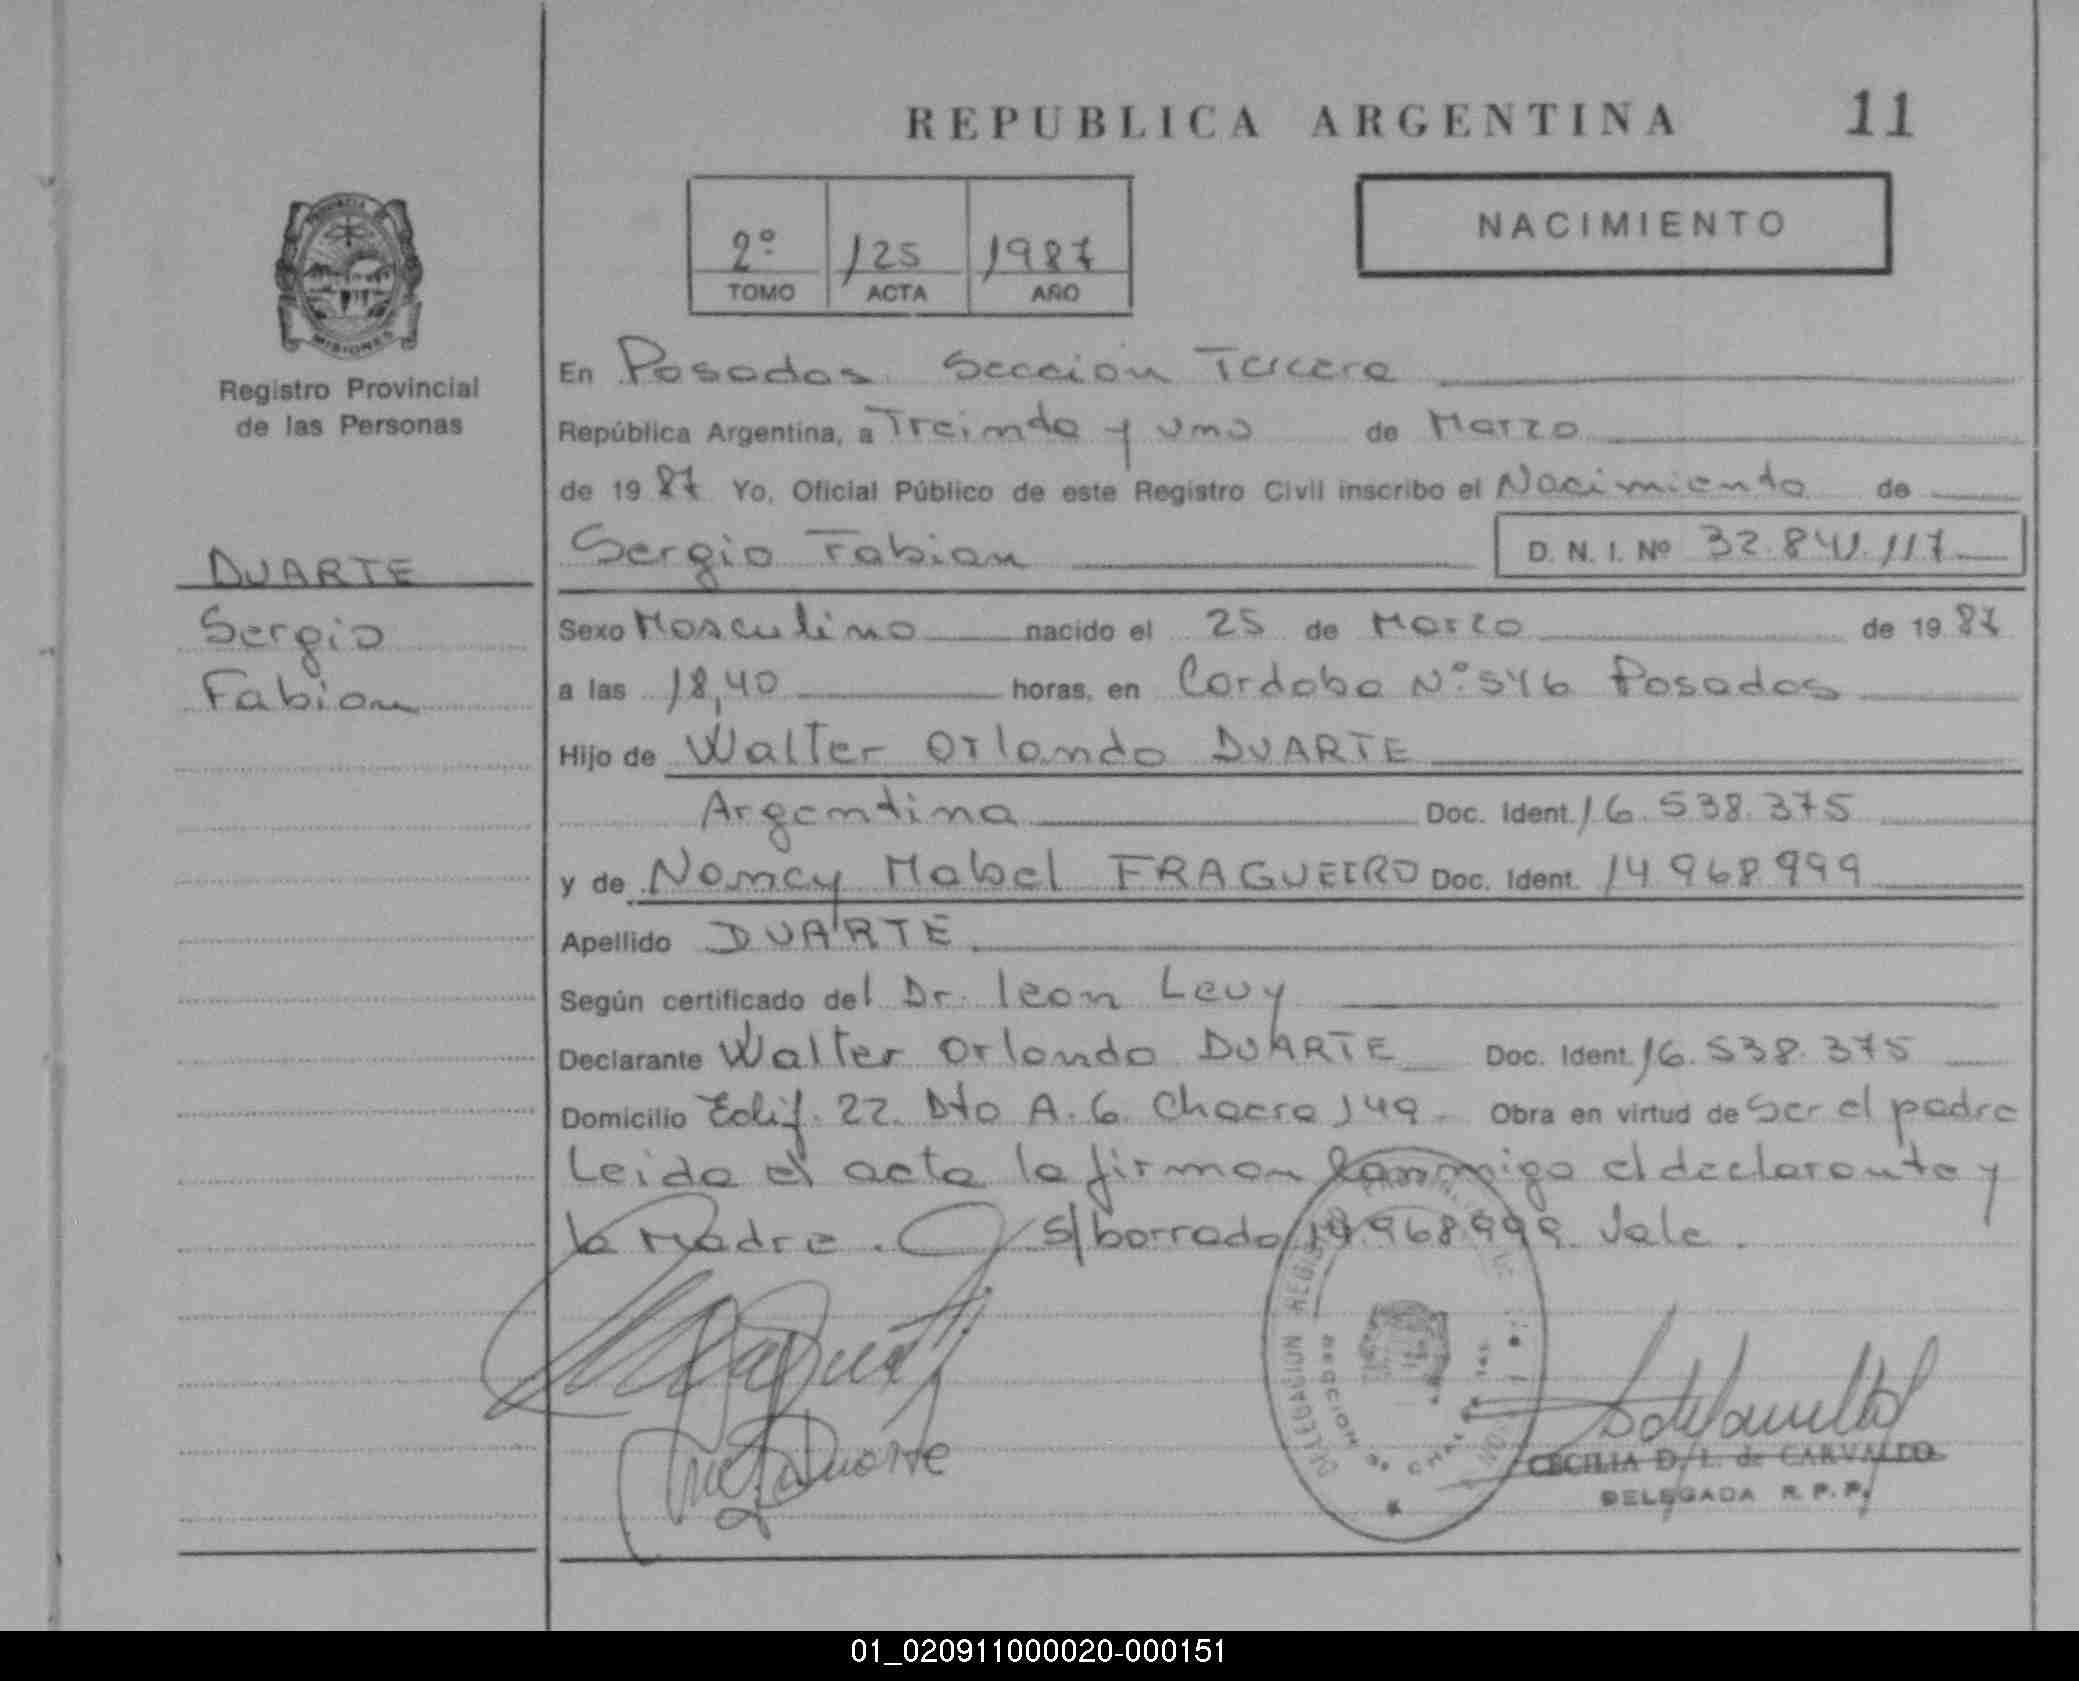 REPUBLICA ARGENTINA 11
NACIMIENTO
2º 125 1987
TOMO ACTA AÑO
PROVINCIA
MISIONES
Registro Provincial
de las Personas
DUARTE
Sergio
Fabian
En Posadas Sección Tercera
República Argentina, a Treinta y uno de Marzo
de 1987 Yo, Oficial Público de este Registro Civil inscribo el Nacimiento de
Sergio Fabian D. N. I. Nº 32.841.117
Sexo Masculino nacido el 25 de Marzo de 1987
a las 18,40 horas, en Cordoba Nº 546 Posadas
Hijo de Walter Orlando DUARTE
Argentina Doc. Ident. 16.538.375
y de Nancy Mabel FRAGUEIRO Doc. Ident. 14.968.999
Apellido DUARTE
Según certificado del Dr. leon Levy
Declarante Walter Orlando DUARTE Doc. Ident. 16.538.375
Domicilio Edif. 22. Dto A. 6. Chacra 149. Obra en virtud de Ser el padre
Leida el acta la firman conmigo el declarante y
la Madre. s/borrado 14.968.999. Vale.
DELEGACION
SECCION
Duarte
CECILIA D. L. de CARVALLO
DELEGADA R. P. P.
01_020911000020-000151